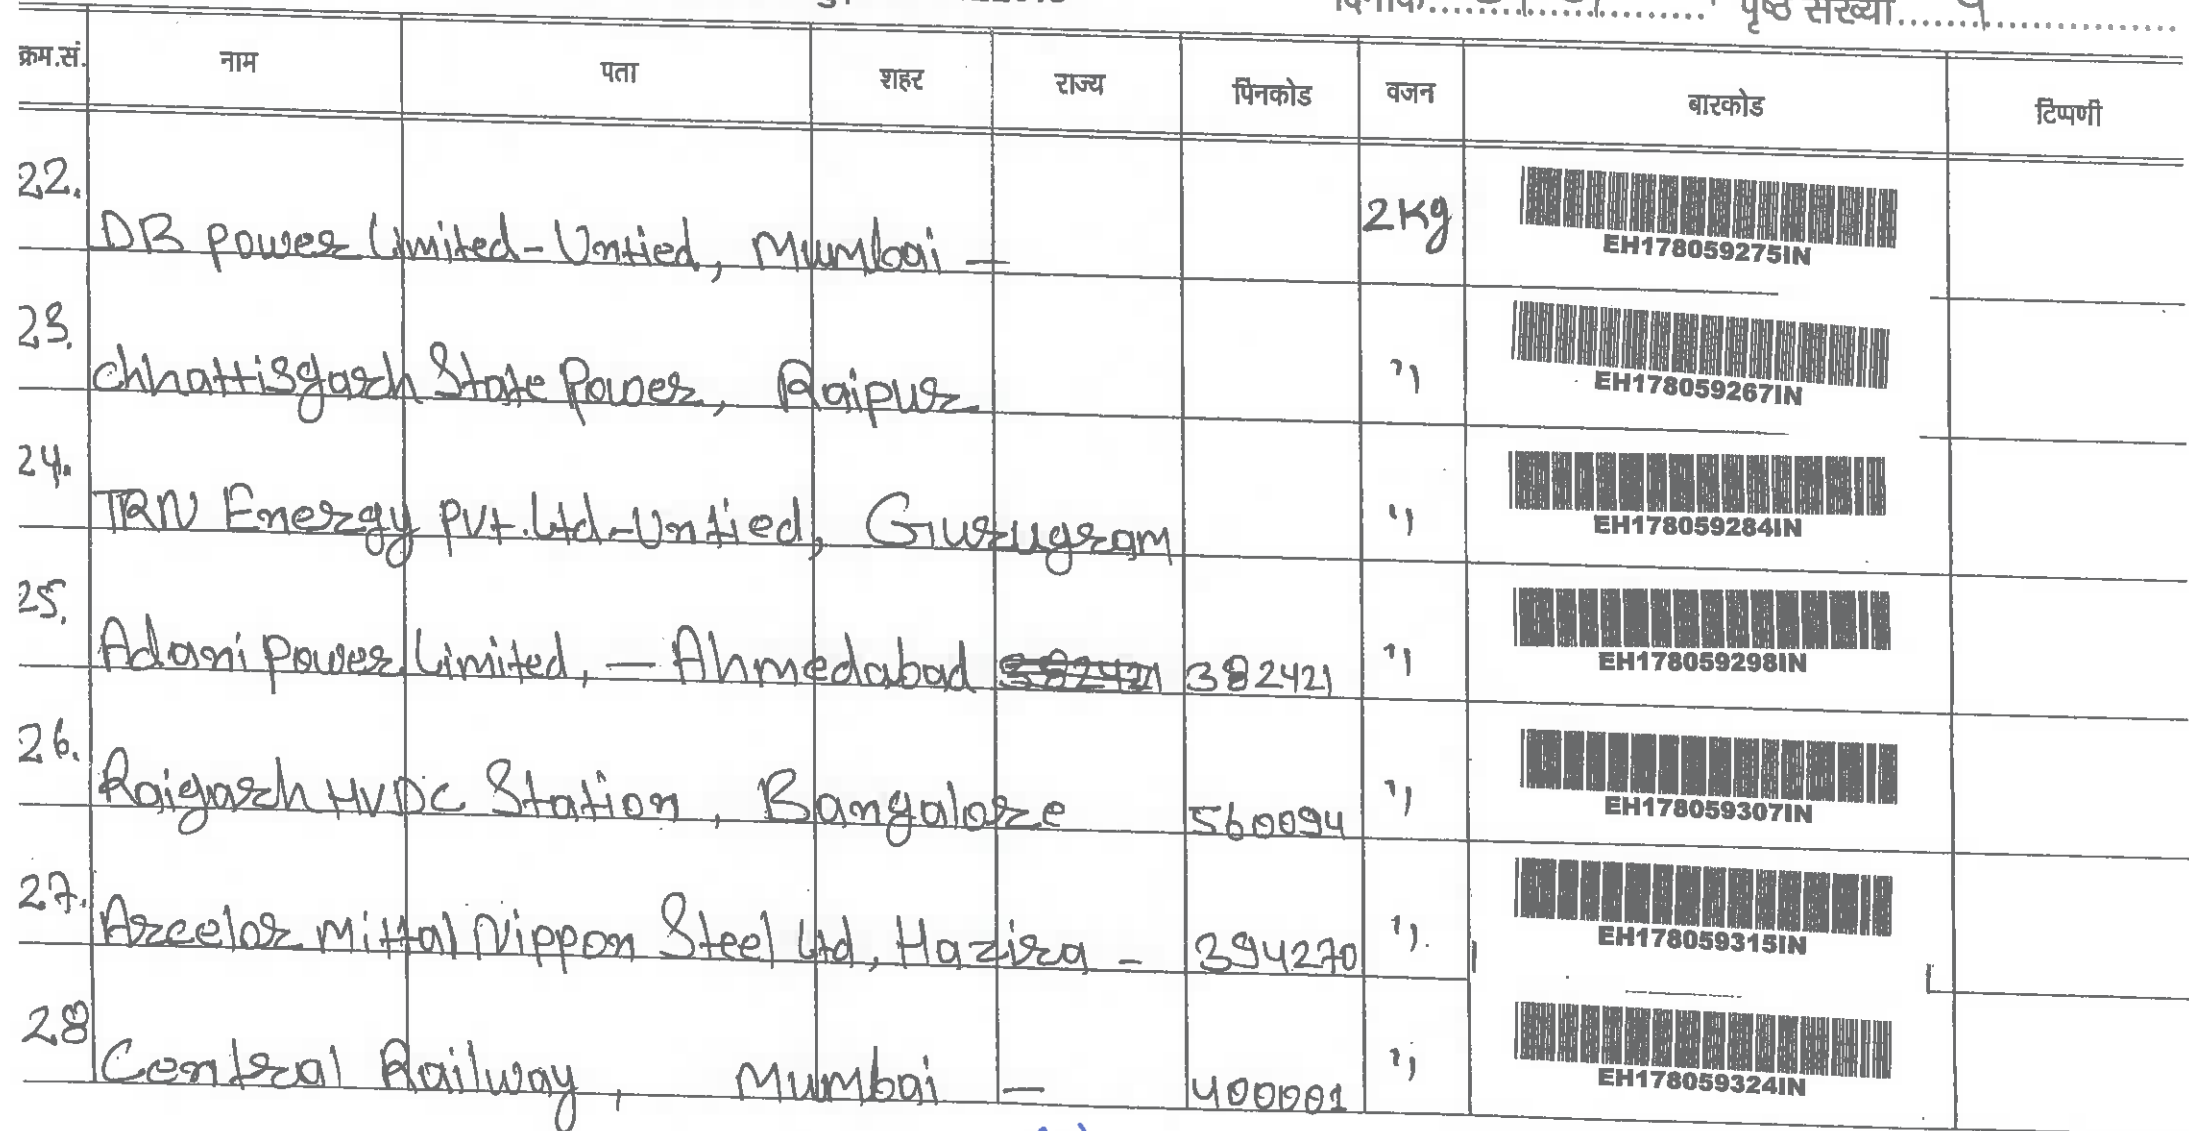 दिनांक.................... पृष्ठ संख्या....................
क्रम.सं. नाम पता शहर राज्य पिनकोड वजन बारकोड टिप्पणी
22. DB power Limited-Untied, Mumbai - 2Kg
EH178059275IN
23. Chhattisgarh State Power, Raipur "
EH178059267IN
24. TRN Energy Pvt.Ltd-Untied, Gurugram "
EH178059284IN
25. Adani Power Limited, - Ahmedabad 382421 382421 "
EH178059298IN
26. Raigarh HVDC Station, Bangalore 560094 "
EH178059307IN
27. Arcelor Mittal Nippon Steel Ltd, Hazira - 394270 "
EH178059315IN
28 Central Railway, Mumbai - 400001 "
EH178059324IN